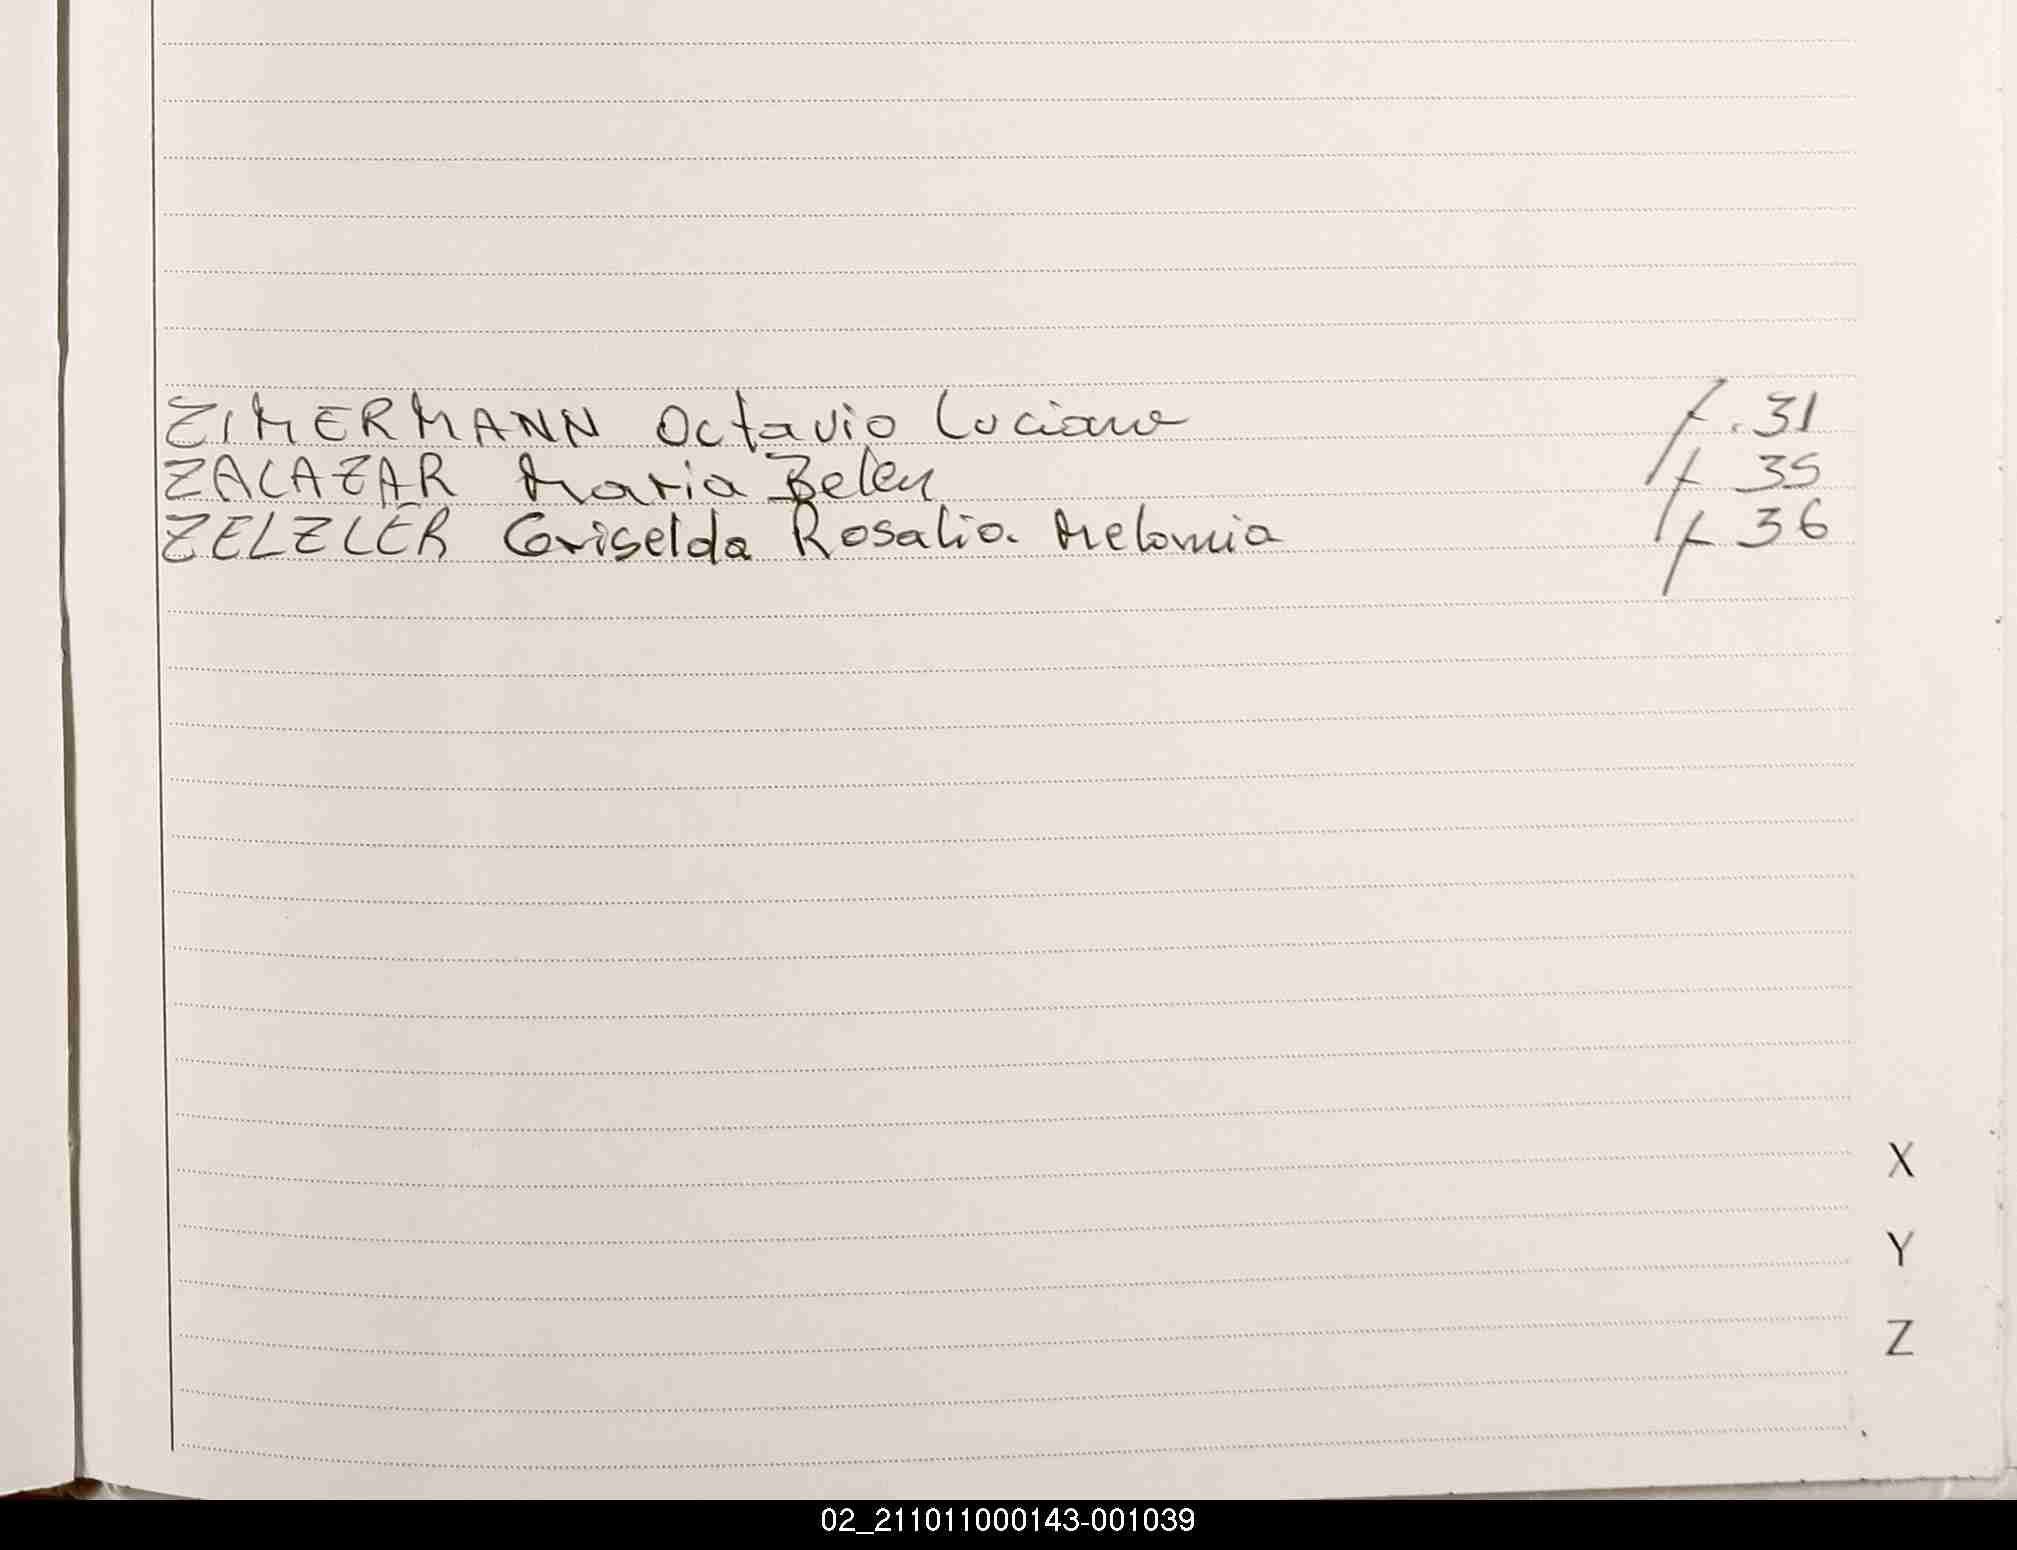 ZIMERMANN Octavio Luciano f. 31
ZALAZAR Maria Belen f 35
ZELZLER Griselda Rosalia Melania f 36
X
Y
Z
02_211011000143-001039